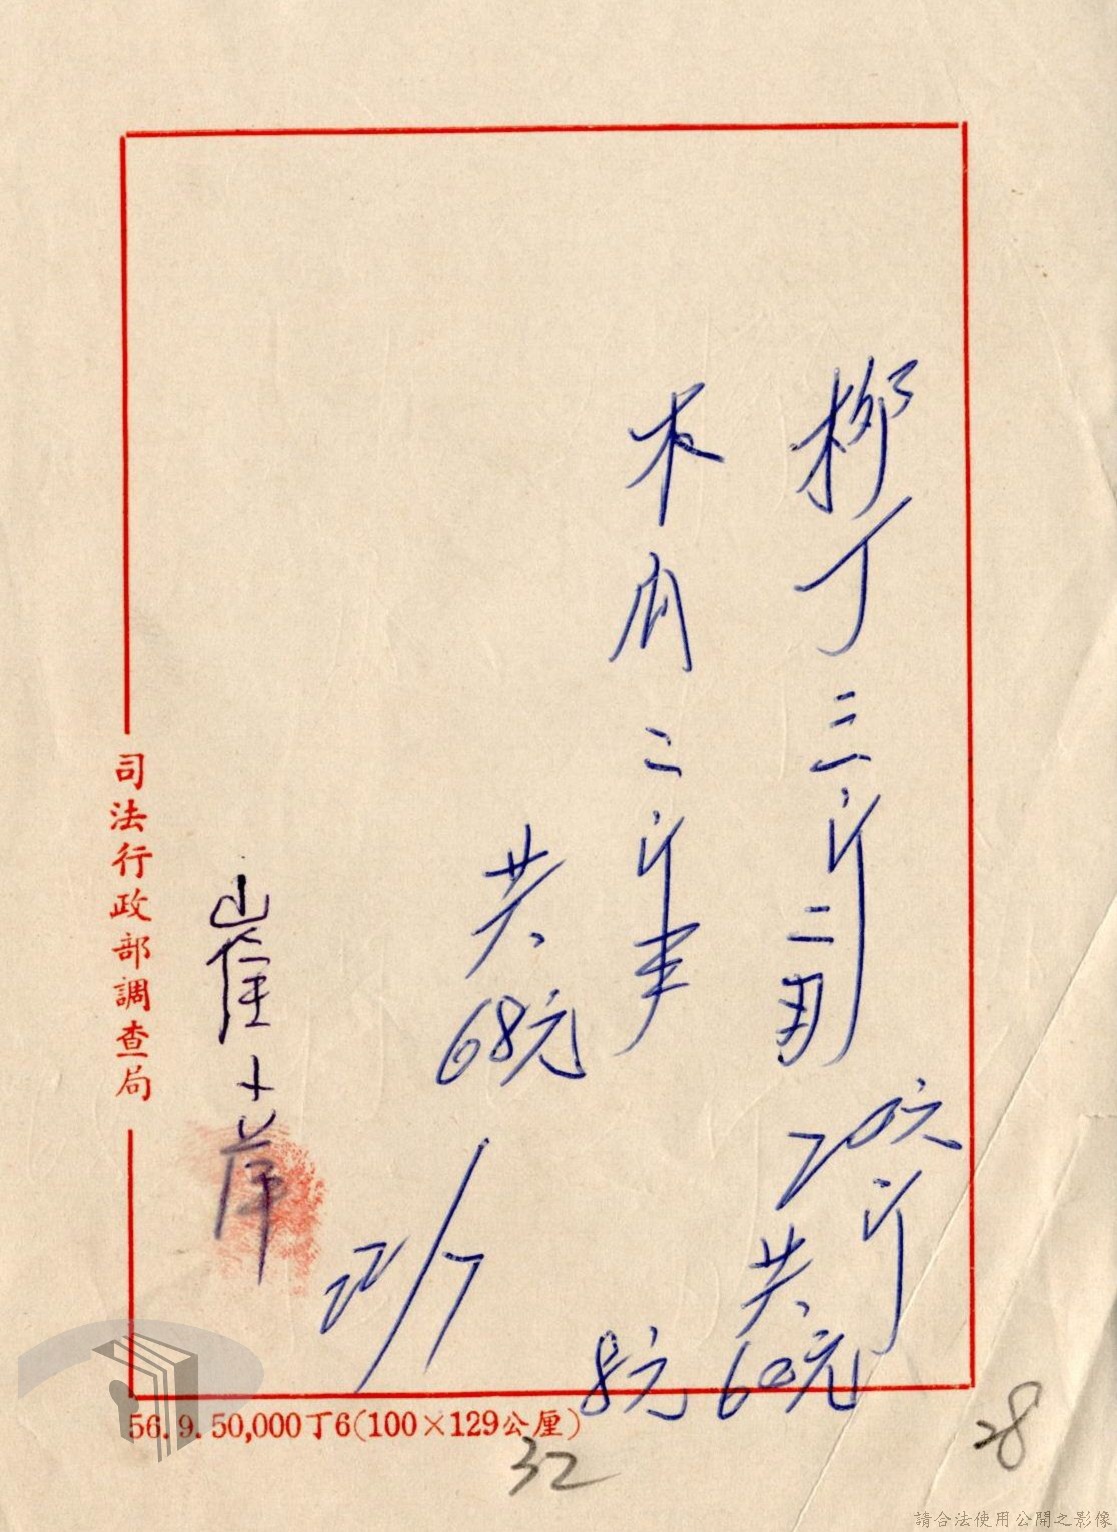 柳丁三斤二両
20元斤
共60元
木瓜二斤半
8元
共68元
22/7
崔小萍
司法行政部調查局
56.9.50,000丁6(100×129公厘)
32
28
請合法使用公開之影像